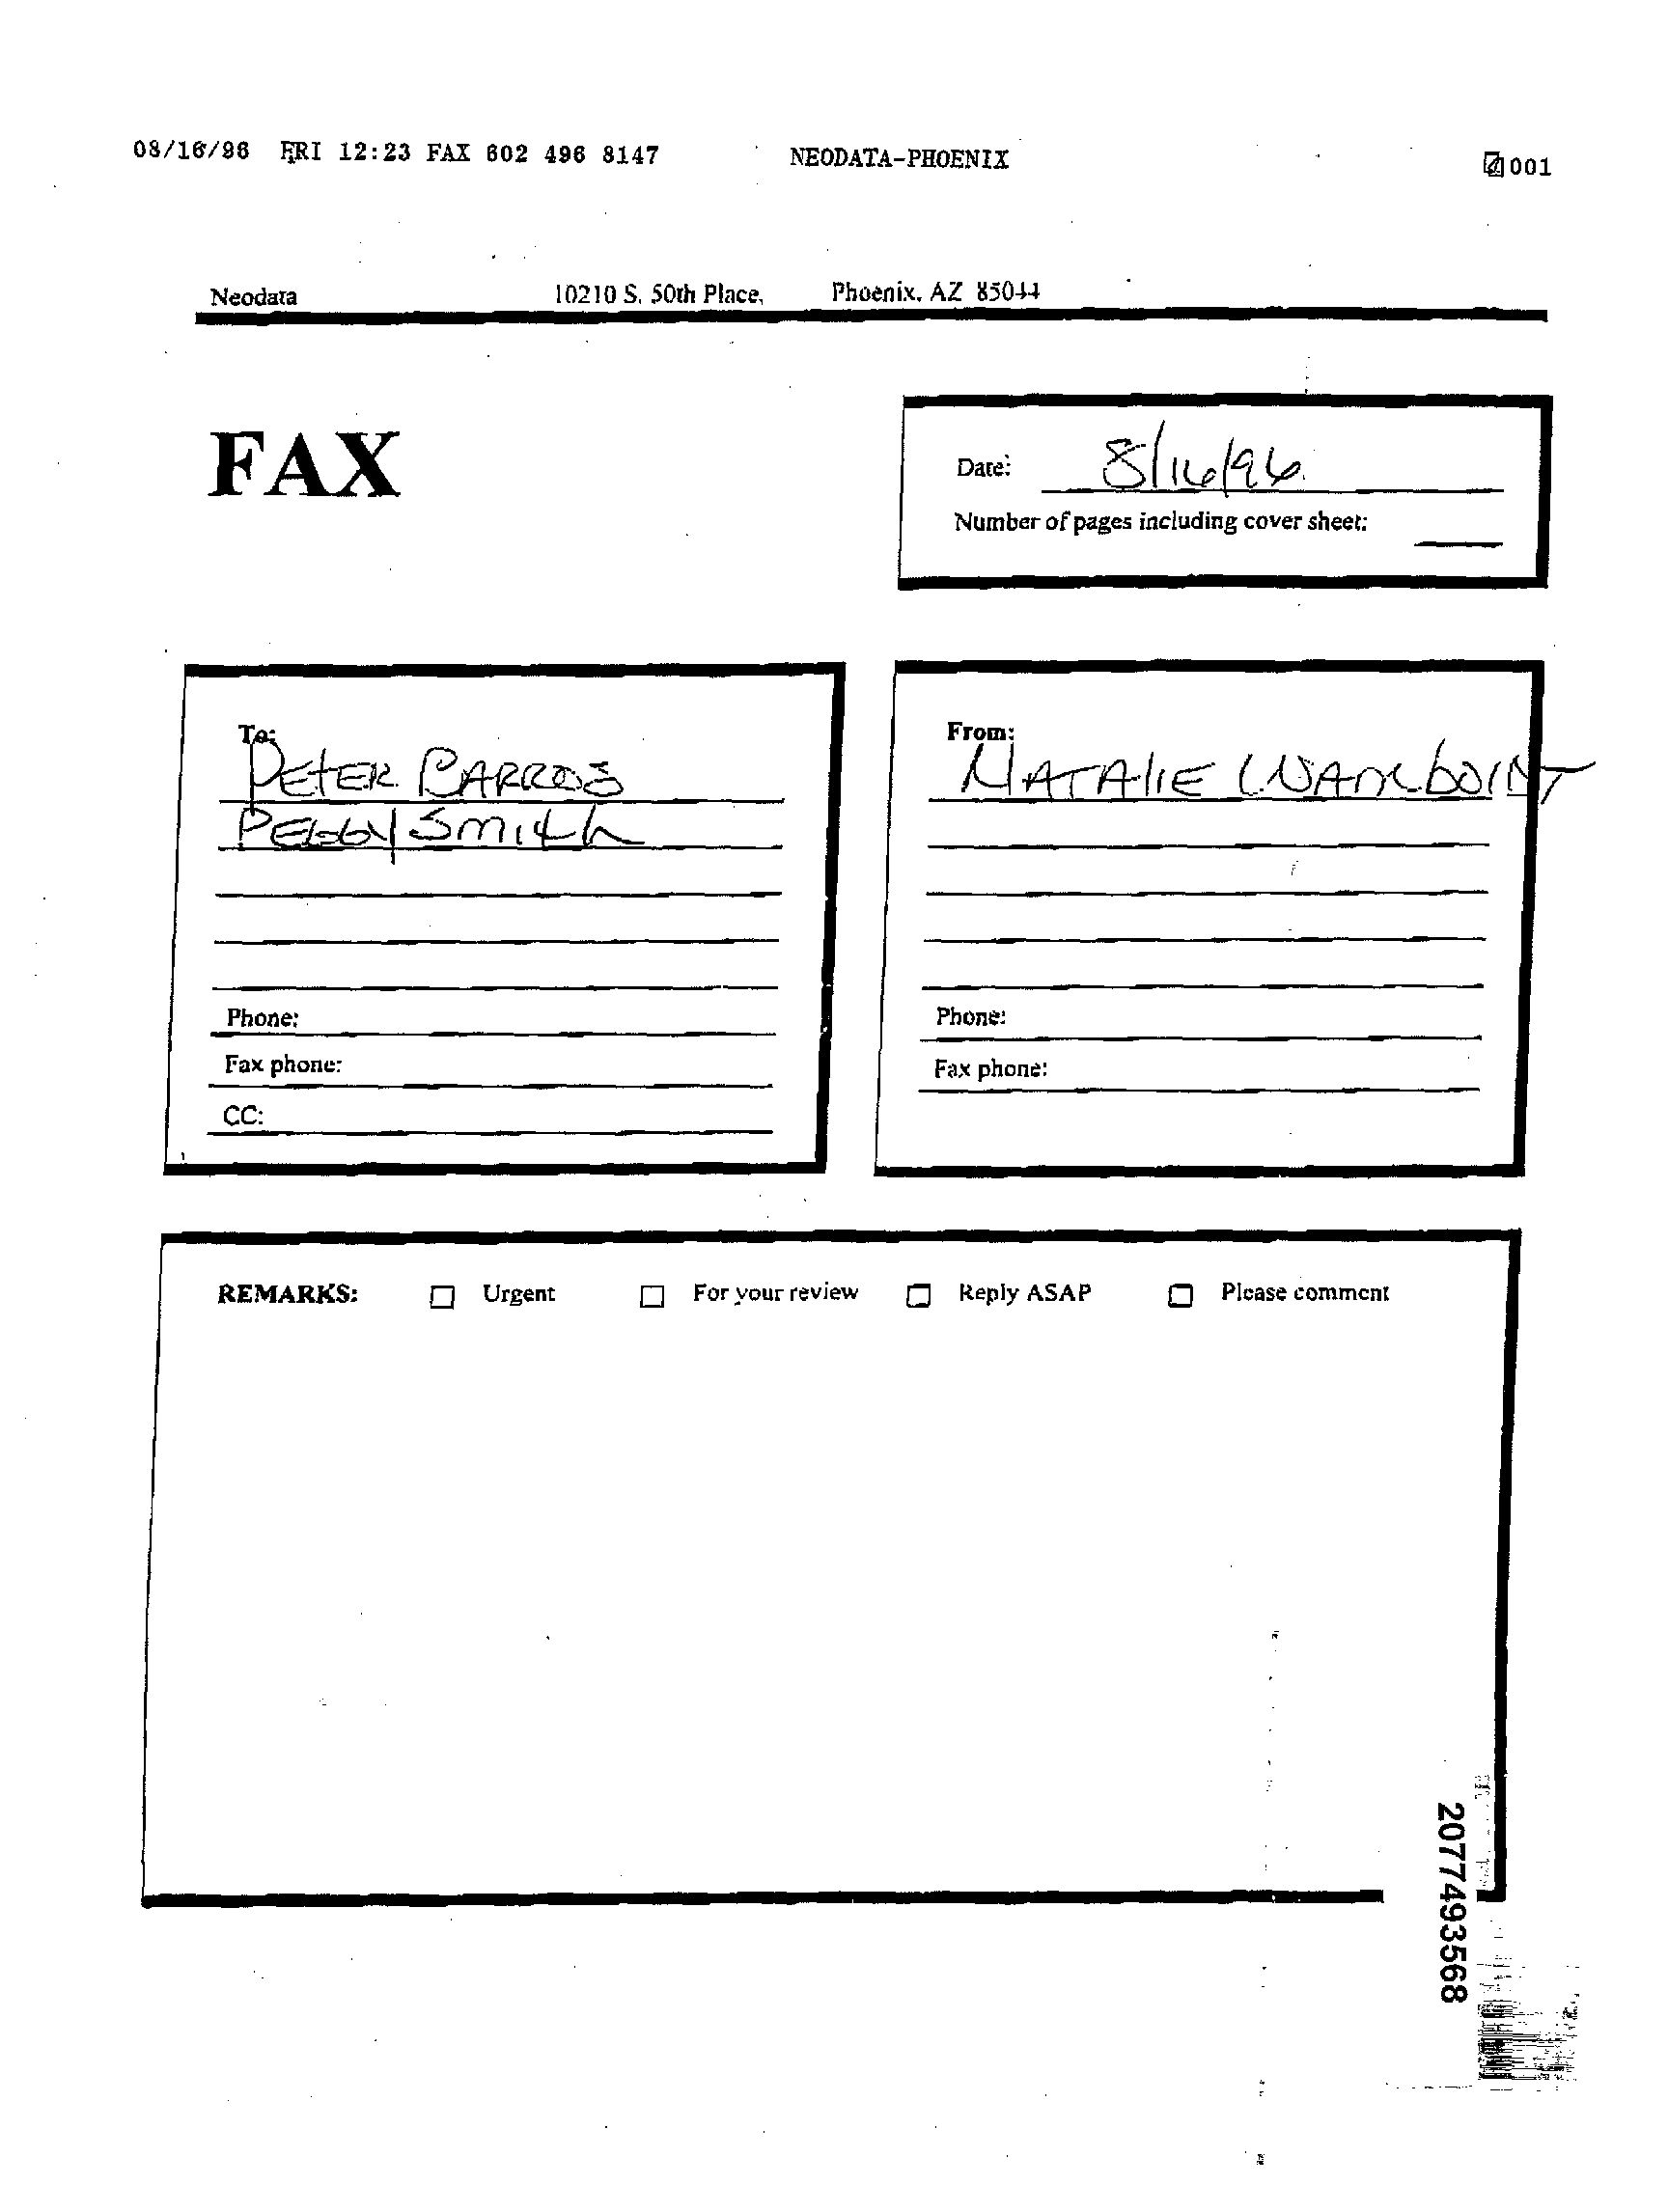 08/16/96 FRI 12:23 FAX 602 496 8147 NEODATA-PHOENIX 001
Neodata 10210 S. 50th Place, Phoenix, AZ 85044
FAX
Date: 8/16/96
Number of pages including cover sheet:
To:
PETER BARROS
PEGGY SMITH
Phone:
Fax phone:
CC:
From:
NATALIE
Phone:
Fax phone:
REMARKS: Urgent For your review Reply ASAP Please comment
2077493568